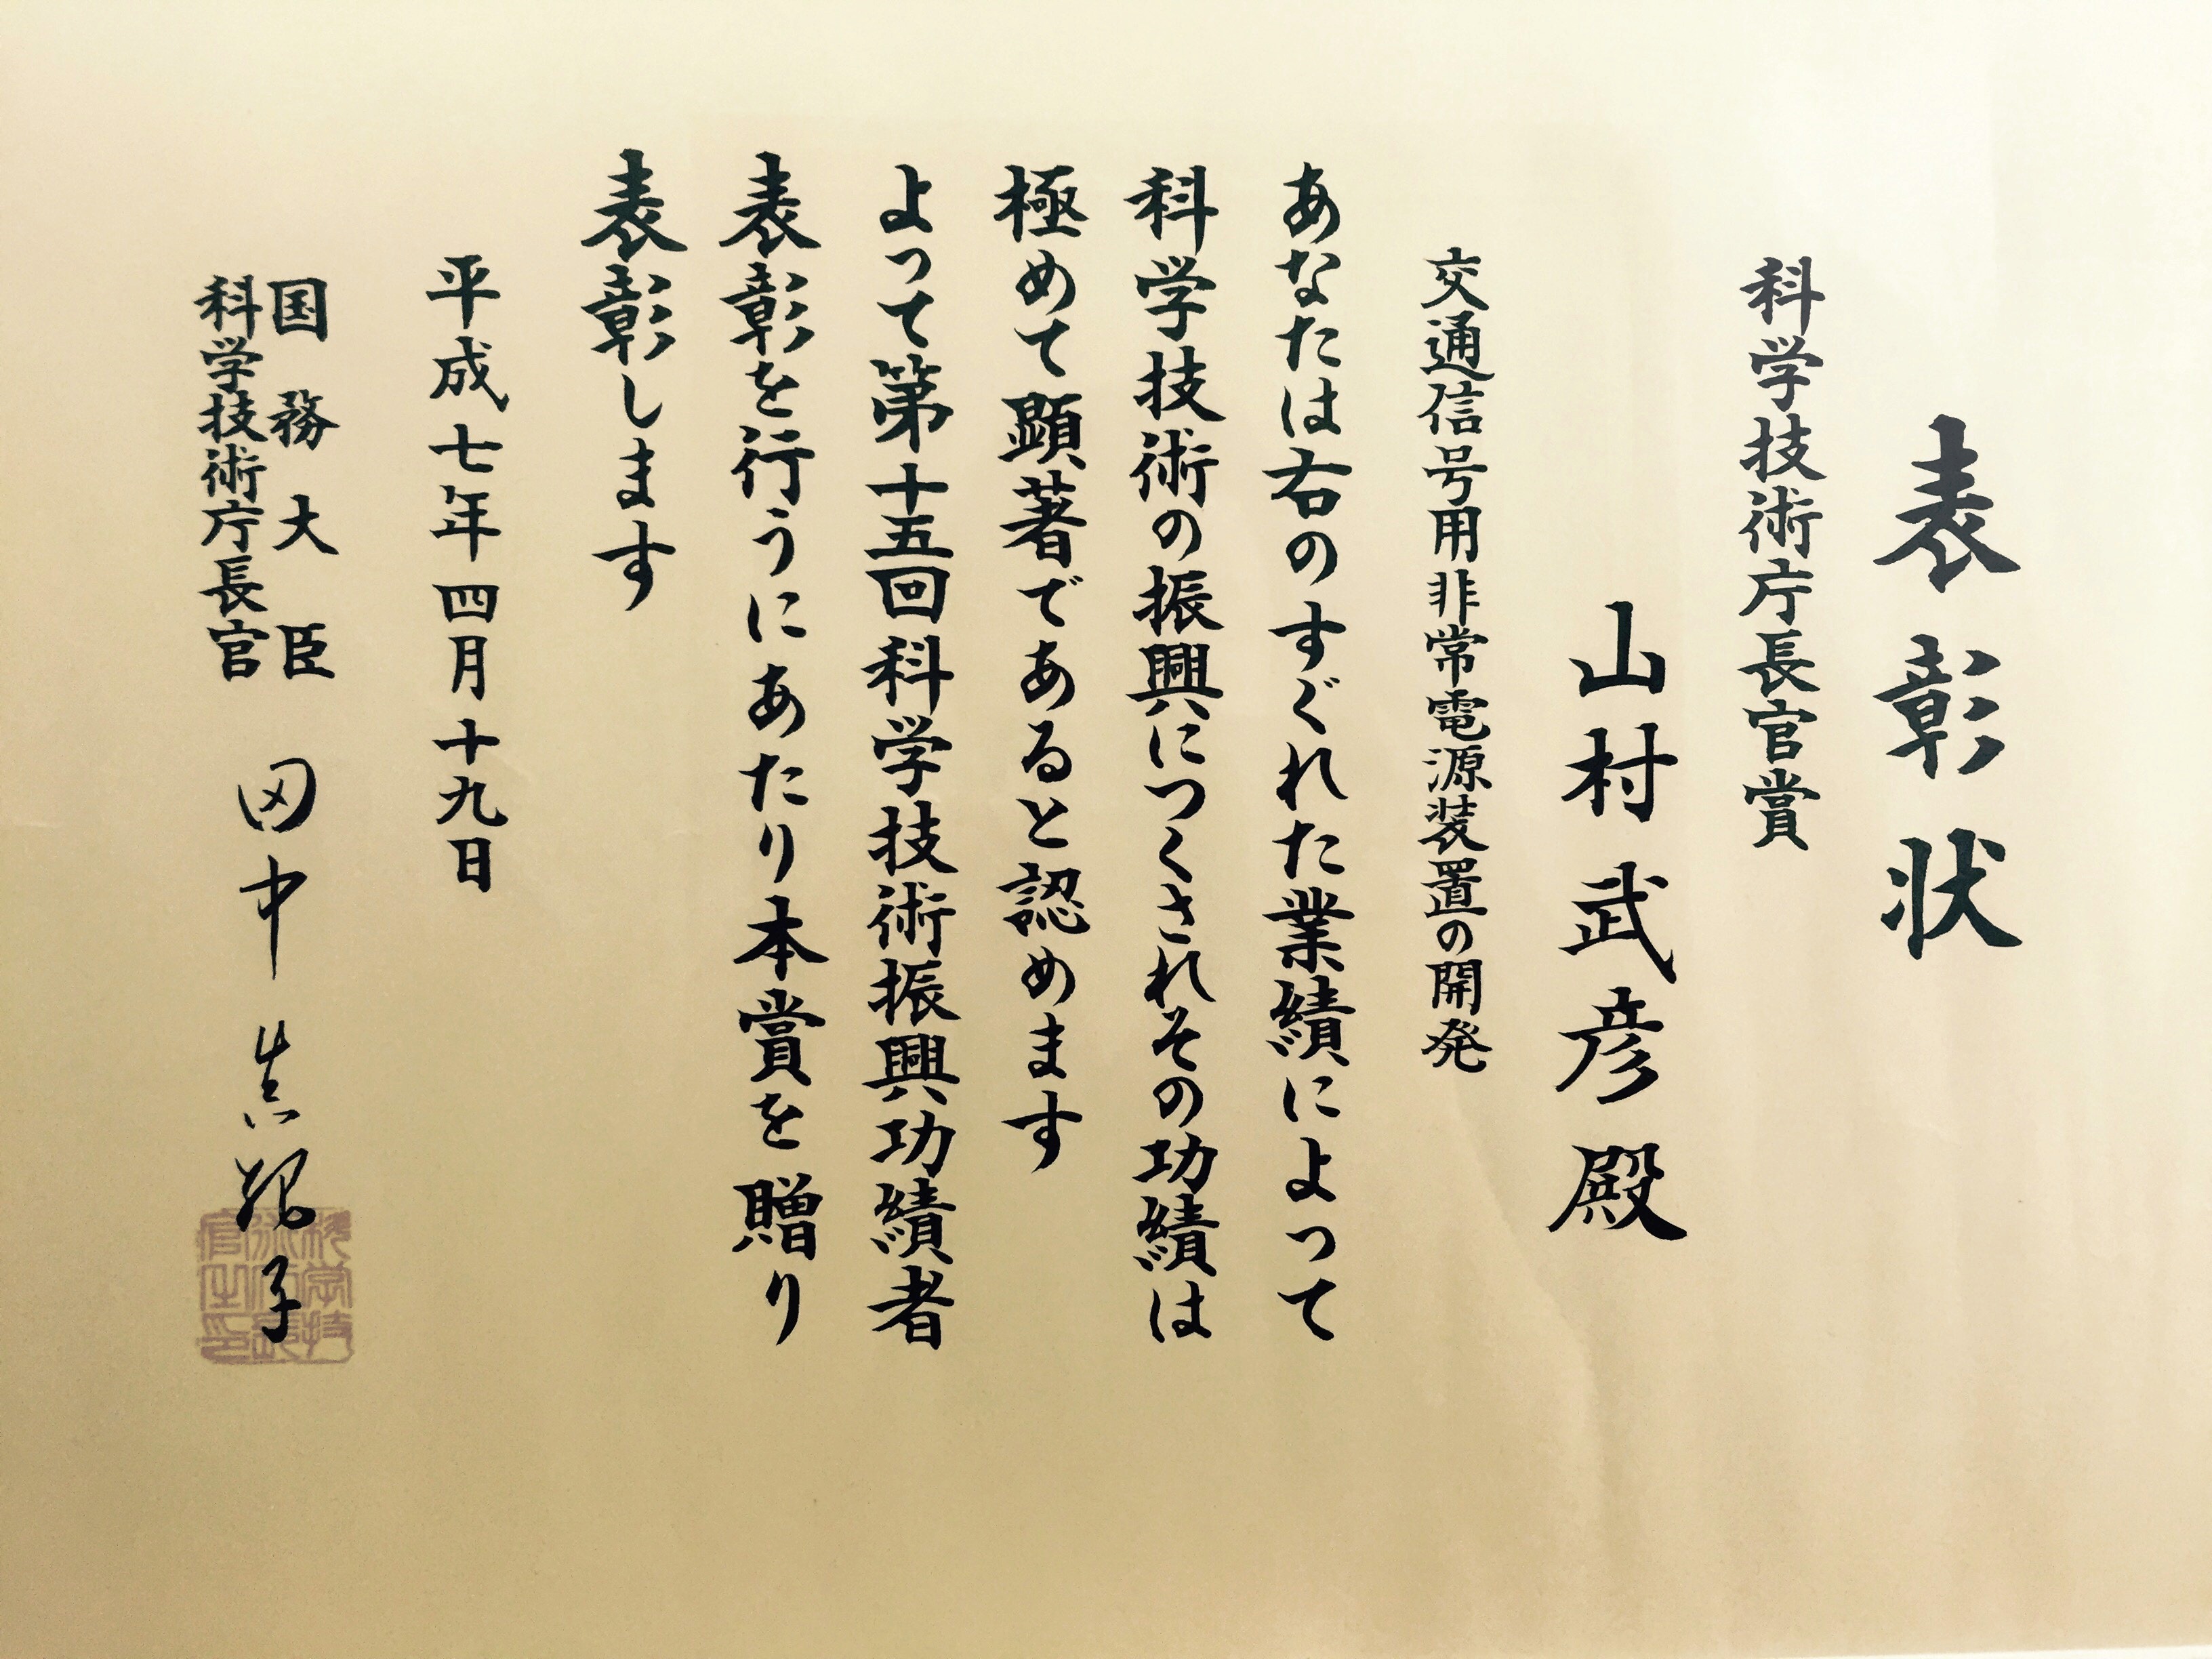 表彰状
科学技術庁長官賞
山村武彦殿
交通信号用非常電源装置の開発
あなたは右のすぐれた業績によって
科学技術の振興につくされその功績は
極めて顕著であると認めます
よって第十五回科学技術振興功績者
表彰を行うにあたり本賞を贈り
表彰します
平成七年四月十九日
国務大臣
科学技術庁長官
田中眞紀子